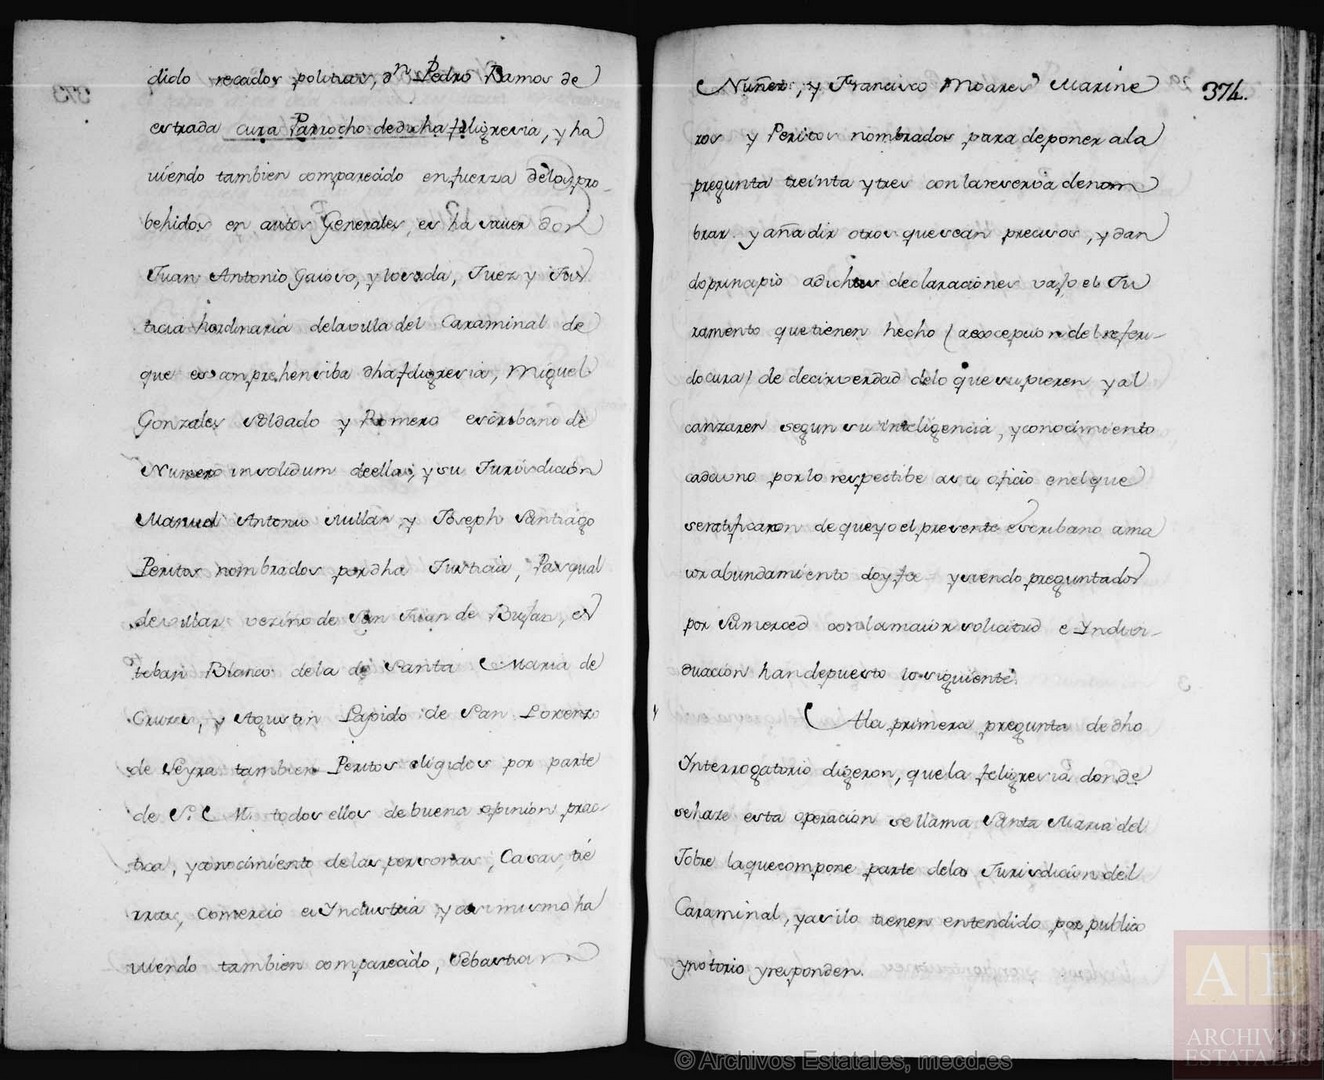 dido recados politicos, dn. Pedro Ramos de
estrada cura Parrocho de dicha feligresia, y ha
viendo tambien comparecido en fuerza de los pro
behidos en autos Generales, es ha saver don
Juan Antonio Gaioso, y losada, Juez y Jus
ticia hordinaria de la villa del Caraminal de
que es comprehensiba dha feligresia, Miguel
Gonzales Soldado y Romero escribano de
Numero in solidum de ella, y su Jurisdicion
Manuel Antonio Millan y Joseph Santiago
Peritos nombrados por dha Justicia, Pasqual
de villar vecino de San Juan de Bujan, es
teban Blanco de la de Santa Maria de
Cruces, y Agustin Lapido de San Lorenzo
de Seyra tambien Peritos eligidos por parte
de S. M. todos ellos de buena opinion prac
tica, y conocimiento de las personas, Casas, tie
rras, Comercio e Yndustria y asimismo ha
viendo tambien comparecido, Sebastian
374.
Nuñez, y Francisco Moares Marine
ros y Peritos nombrados para deponer a la
pregunta treinta y tres con la reserva de nom
brar y añadir otros que sean precisos, y dan
do principio a dichas declaraciones vajo el Ju
ramento que tienen hecho (a excepcion del referi-
do cura) de decir verdad de lo que supieren y al
canzaren segun su inteligencia, y conocimiento
cada uno por lo respectibe a su oficio en el que
se ratificaron de que yo el presente escribano a ma
ior abundamiento doy fee y siendo preguntados
por su merced con la maior solicitud e Yndivi-
duacion han depuesto lo siguiente.
A la primera pregunta de dho
Interrogatorio digeron, que la feligresia donde
se haze esta operacion se llama Santa Maria del
Jobre la que compone parte de la Jurisdicion del
Caraminal, y asi lo tienen entendido por publico
y notorio y responden.
A E
ARCHIVOS
ESTATALES
© Archivos Estatales, mecd.es